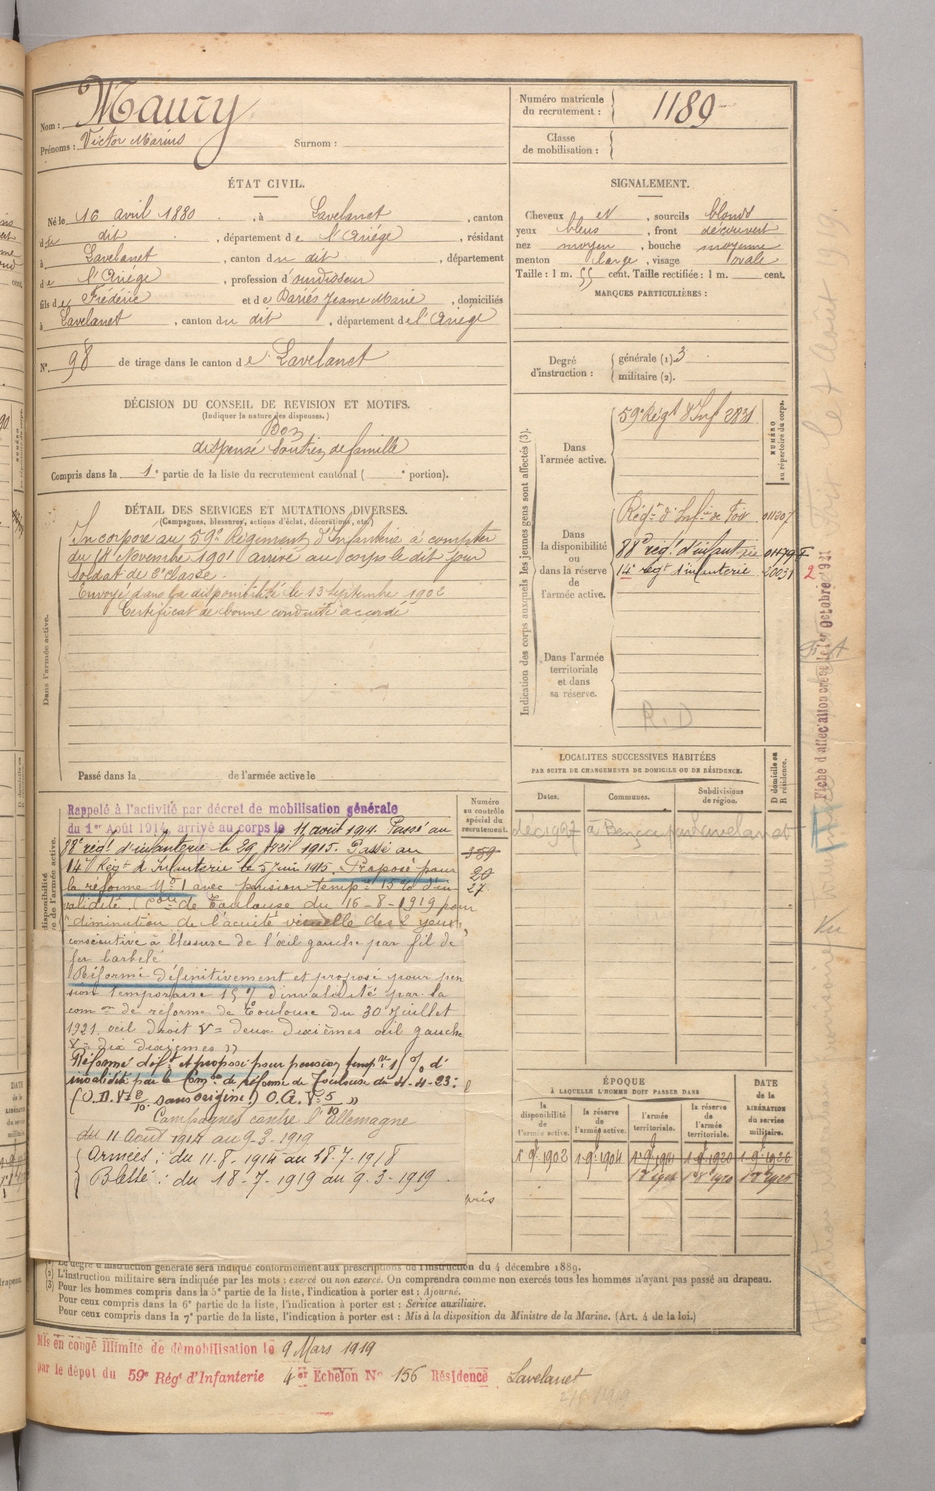 Nom : Maury
Prénoms : Victor Marius Surnom :
Numéro matricule du recrutement : 1189
Classe de mobilisation :
ÉTAT CIVIL.
Né le 16 avril 1880, à Lavelanet, canton
du dit, département de l'Ariège, résidant
à Lavelanet, canton du dit, département
de l'Ariège, profession d'ourdisseur
fils de Frédéric et de Pariès Jeanne Marie, domiciliés
à Lavelanet, canton du dit, département de l'Ariège
N° 98 de tirage dans le canton de Lavelanet
SIGNALEMENT.
Cheveux et, sourcils blonds
yeux bleus, front découvert
nez moyen, bouche moyenne
menton large, visage ovale
Taille : 1 m. 55 cent. Taille rectifiée : 1 m. cent.
MARQUES PARTICULIÈRES :
Degré d'instruction : générale (1). 3
militaire (2).
DÉCISION DU CONSEIL DE REVISION ET MOTIFS.
(Indiquer la nature des dispenses.)
Bon
dispensé Soutien de famille
Compris dans la 1e partie de la liste du recrutement cantonal ( e portion).
DÉTAIL DES SERVICES ET MUTATIONS DIVERSES.
(Campagnes, blessures, actions d'éclat, décorations, etc.)
Dans l'armée active.
Incorporé au 59e Régiment d'Infanterie à compter
du 14 Novembre 1901 arrivé au corps le dit jour
Soldat de 2e classe.
Envoyé dans la disponibilité le 13 septembre 1902
Certificat de bonne conduite accordé
Passé dans la de l'armée active le
Indication des corps auxquels les jeunes gens sont affectés (3).
NUMÉRO au répertoire du corps.
Dans l'armée active.
59e Régt d'Inf 2831
Dans la disponibilité ou dans la réserve de l'armée active.
Régt d'Infie de Foix 011307
88e régt d'infanterie 01179
14e régt d'infanterie 20031 2
Dans l'armée territoriale et dans sa réserve.
R.D
Fiche d'affectation créée le 1er Octobre 1921
LOCALITES SUCCESSIVES HABITÉES
PAR SUITE DE CHANGEMENTS DE DOMICILE OU DE RÉSIDENCE.
Dates. Communes. Subdivisions de région. D domicile ou R résidence.
Numéro au contrôle spécial du recrutement.
359
20
27
Rappelé à l'activité par décret de mobilisation générale
du 1er Août 1914, arrivé au corps le 11 août 1914. Passé au
88e régt d'infanterie le 29 avril 1915. Passé au
14e Régt d'Infanterie le 5 juin 1915. Proposé pour
la réforme N° 1 avec pension tempre 15 % d'in
validité Con de Toulouse du 16-8-1919 pour
"diminution de l'acuité visuelle des 2 yeux,
consécutive à blessure de l'œil gauche par fil de
fer barbelé
Réformé définitivement et proposé pour pen
sion temporaire 15 % d'invalidité par la
comon de réforme de Toulouse du 30 juillet
1921. œil droit V = deux dixièmes œil gauche
V = dix dixièmes »
Réformé deft et proposé pour pension tempre % d'
invalidité par la Comon de réforme de Toulouse du 4-4-23 :
(O.D. V= 2/10 sans origine) O.G. V= 5/10 »
Campagnes contre l'Allemagne
du 11 Août 1914 au 9-3-1919
Armées : du 11-8-1914 au 18-7-1918
Blessé : du 18-7-1919 au 9-3-1919
ÉPOQUE
À LAQUELLE L'HOMME DOIT PASSER DANS
la disponibilité de l'armée active. la réserve de l'armée active. l'armée territoriale. la réserve de l'armée territoriale. DATE de la LIBÉRATION du service militaire.
1 9bre 1902 1 9bre 1904 1 9bre 1911 1 9bre 1920 1 9bre 1926
(1) Le degré d'instruction générale sera indiqué conformément aux prescriptions de l'instruction du 4 décembre 1889.
(2) L'instruction militaire sera indiquée par les mots : exercé ou non exercé. On comprendra comme non exercés tous les hommes n'ayant pas passé au drapeau.
(3) Pour les hommes compris dans la 5e partie de la liste, l'indication à porter est : Ajourné.
Pour ceux compris dans la 6e partie de la liste, l'indication à porter est : Service auxiliaire.
Pour ceux compris dans la 7e partie de la liste, l'indication à porter est : Mis à la disposition du Ministre de la Marine. (Art. 4 de la loi.)
Mis en congé illimité de démobilisation le 9 Mars 1919
par le dépôt du 59e Régt d'Infanterie 4e Echelon N° 156 Résidence Lavelanet